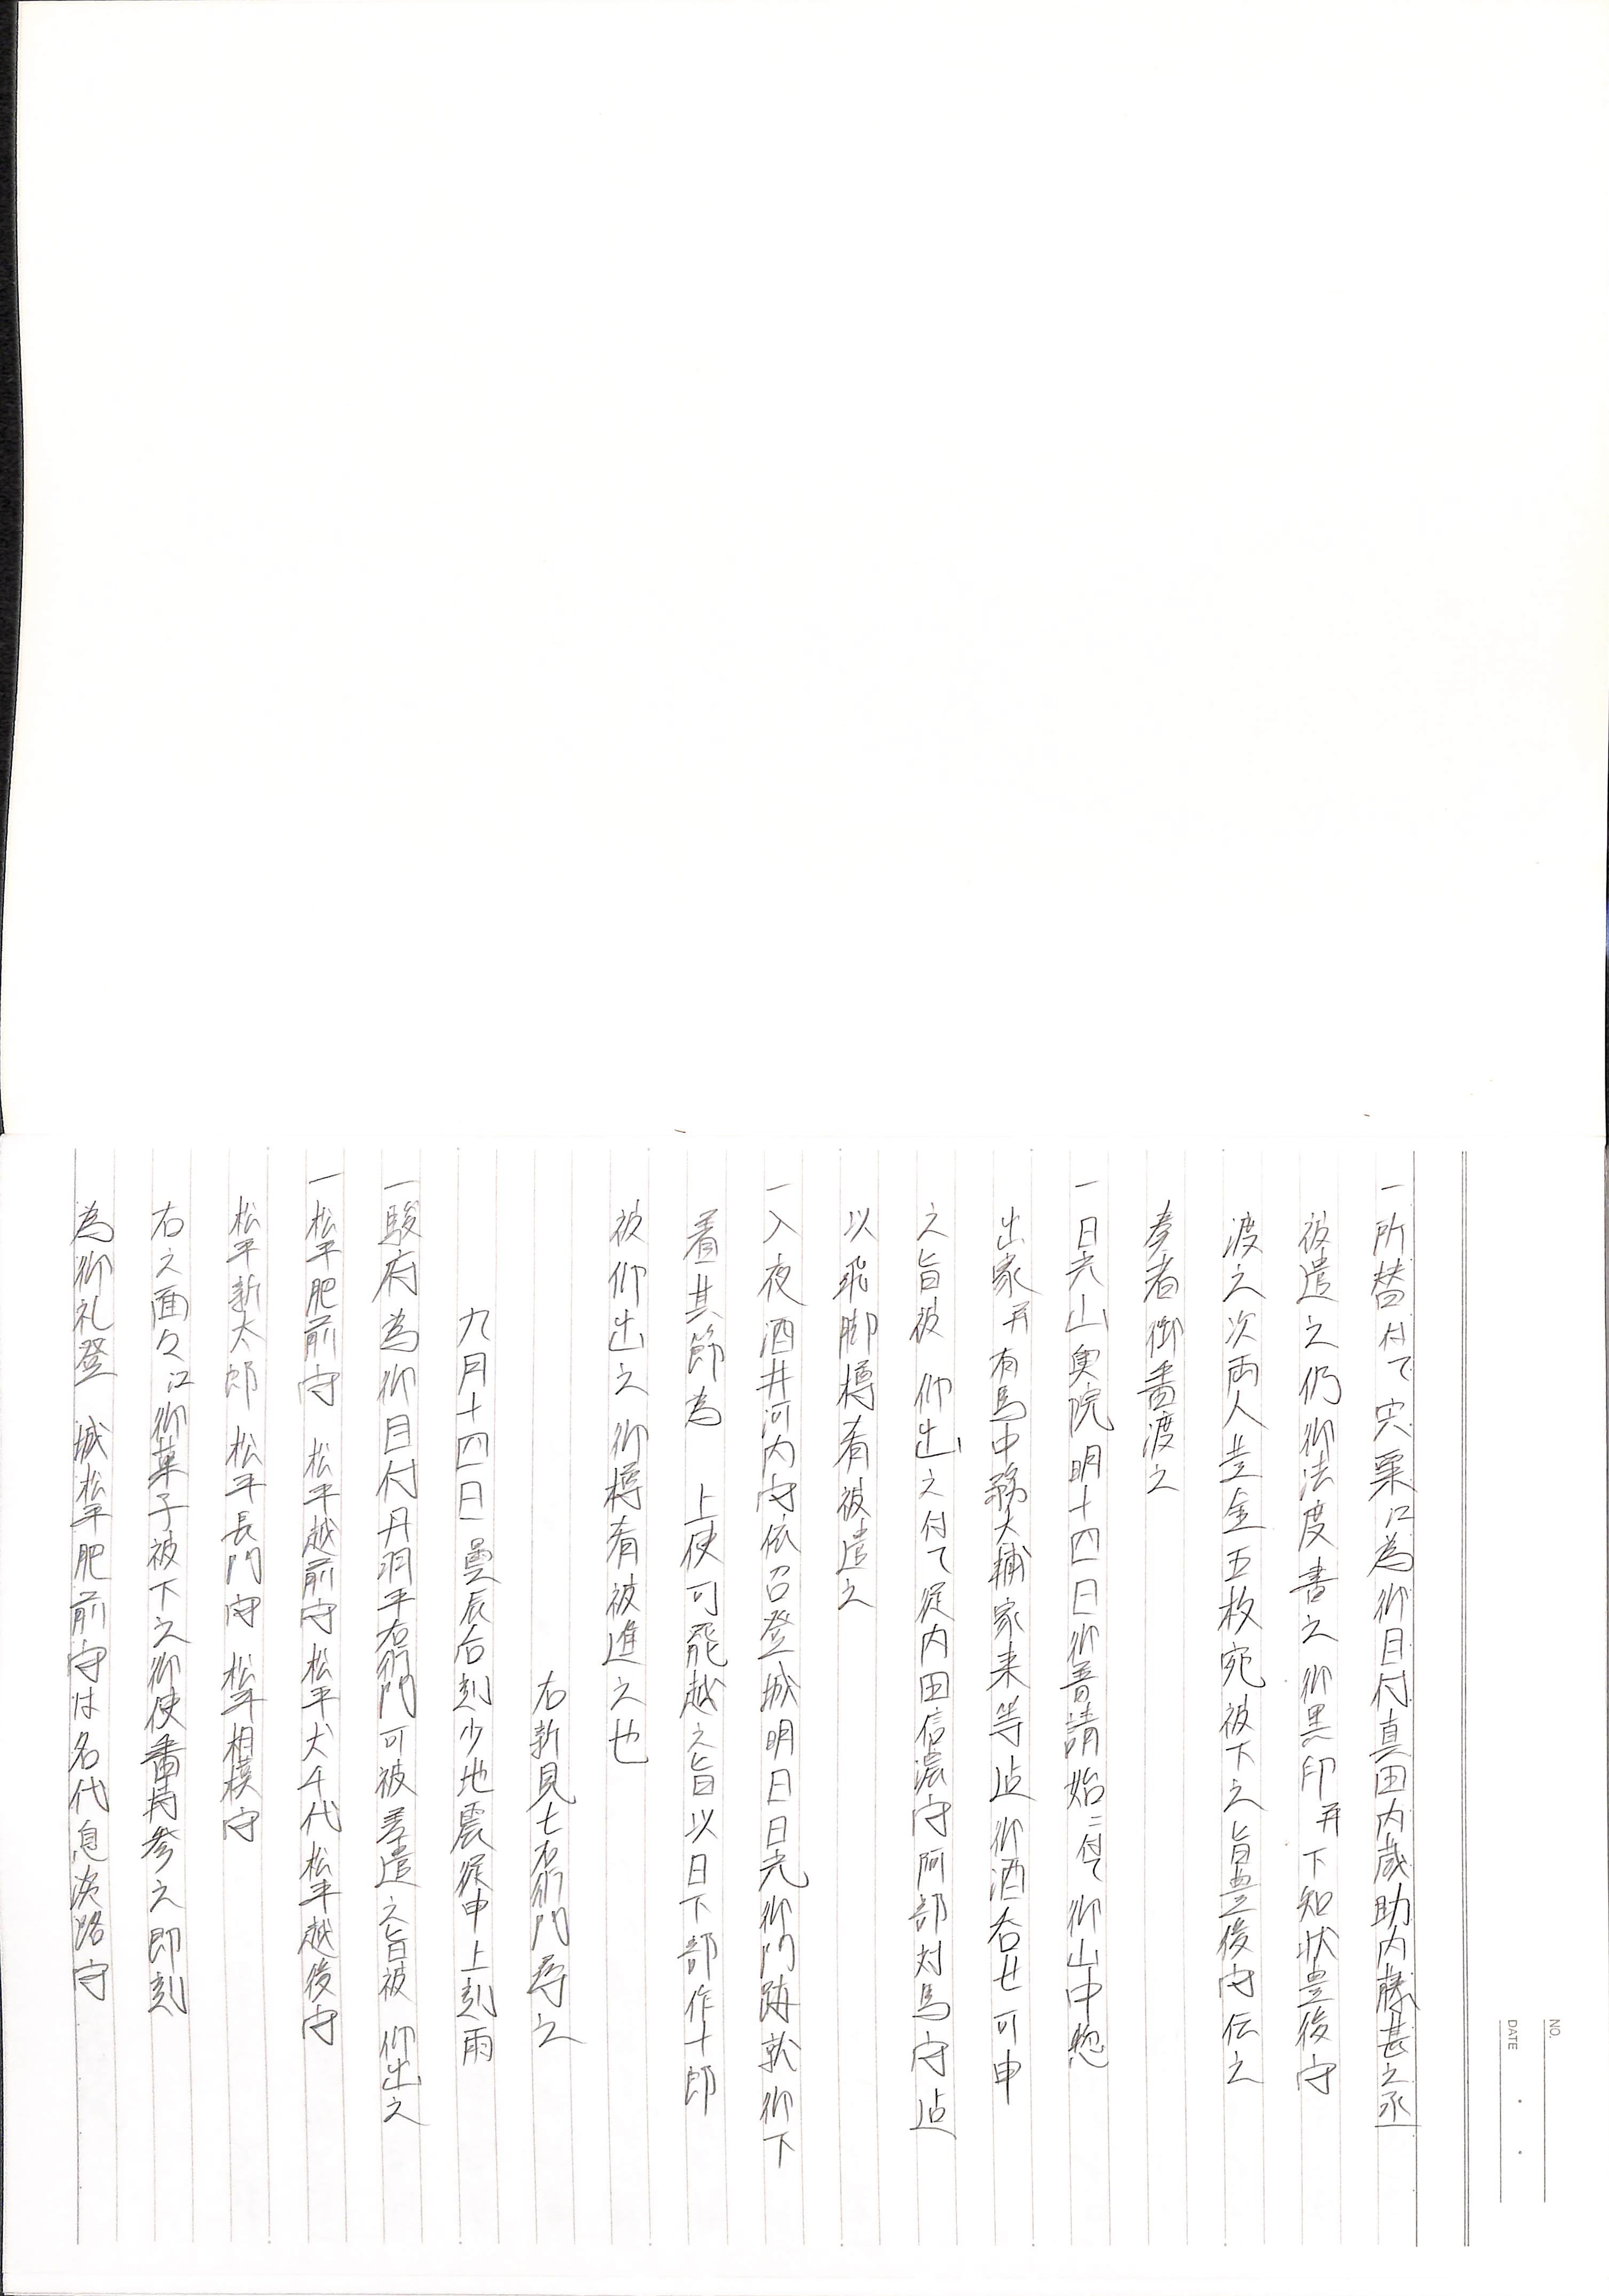 一所替付て宍粟江為御目付真田内蔵助内藤甚之丞
被遣之仍御法度書之御黒印并下知状豊後守
渡之次両人並金五枚宛被下之旨豊後守伝之
奉者御書渡之
一日光山奥院明十四日御普請始ニ付て御山中惣
出家并有馬中務大輔家来等迠御酒呑せ可申
之旨被 仰出之付て従内田信濃守阿部対馬守迠
以飛脚樽肴被遣之
一入夜酒井河内守依召登城明日日光御門跡就御下
着其節為 上使可罷越之旨以日下部作十郎
被仰出之御樽肴被進之也
右新見七右衛門尋之
九月十四日曇辰后刻少地震従申上刻雨
一駿府為御目付丹羽平右衛門可被差遣之旨被 仰出之
一松平肥前守 松平越前守 松平犬千代 松平越後守
松平新太郎 松平長門守 松平相模守
右之面々江御菓子被下之御使番持参之即刻
為御礼登 城松平肥前守は名代息淡路守
NO.
DATE ・ ・